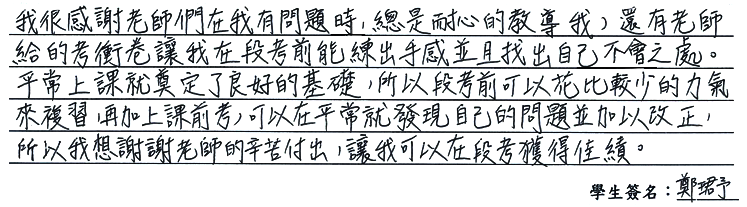 我很感謝老師們在我有問題時，總是耐心的教導我，還有老師
給的考衝卷讓我在段考前能練出手感並且找出自己不會之處。
平常上課就奠定了良好的基礎，所以段考前可以花比較少的力氣
來複習，再加上課前考，可以在平常就發現自己的問題並加以改正，
所以我想謝謝老師的辛苦付出，讓我可以在段考獲得佳績。
學生簽名：鄭珺予